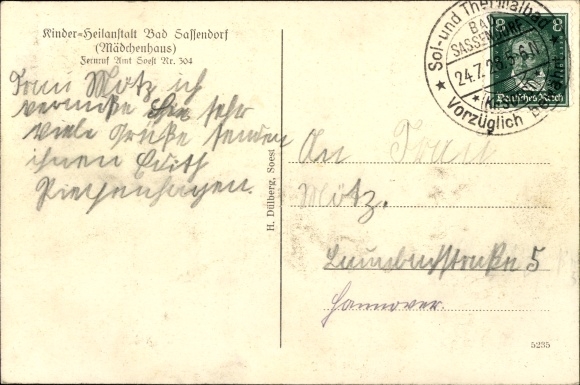 Kinder-Heilanstalt Bad Sassendorf
(Mädchenhaus)
Fernruf Amt Soest Nr. 304
Frau Motz ich
vermisse Sie sehr
viele Grüße senden
ihnen Edith
H. Dülberg, Soest
Sol- und Thermalbad
BAD
SASSENDORF
24.7.28.5-6N
Vorzüglich
8 8
Deutsches Reich
An Frau
Motz.
5
Hannover.
5235